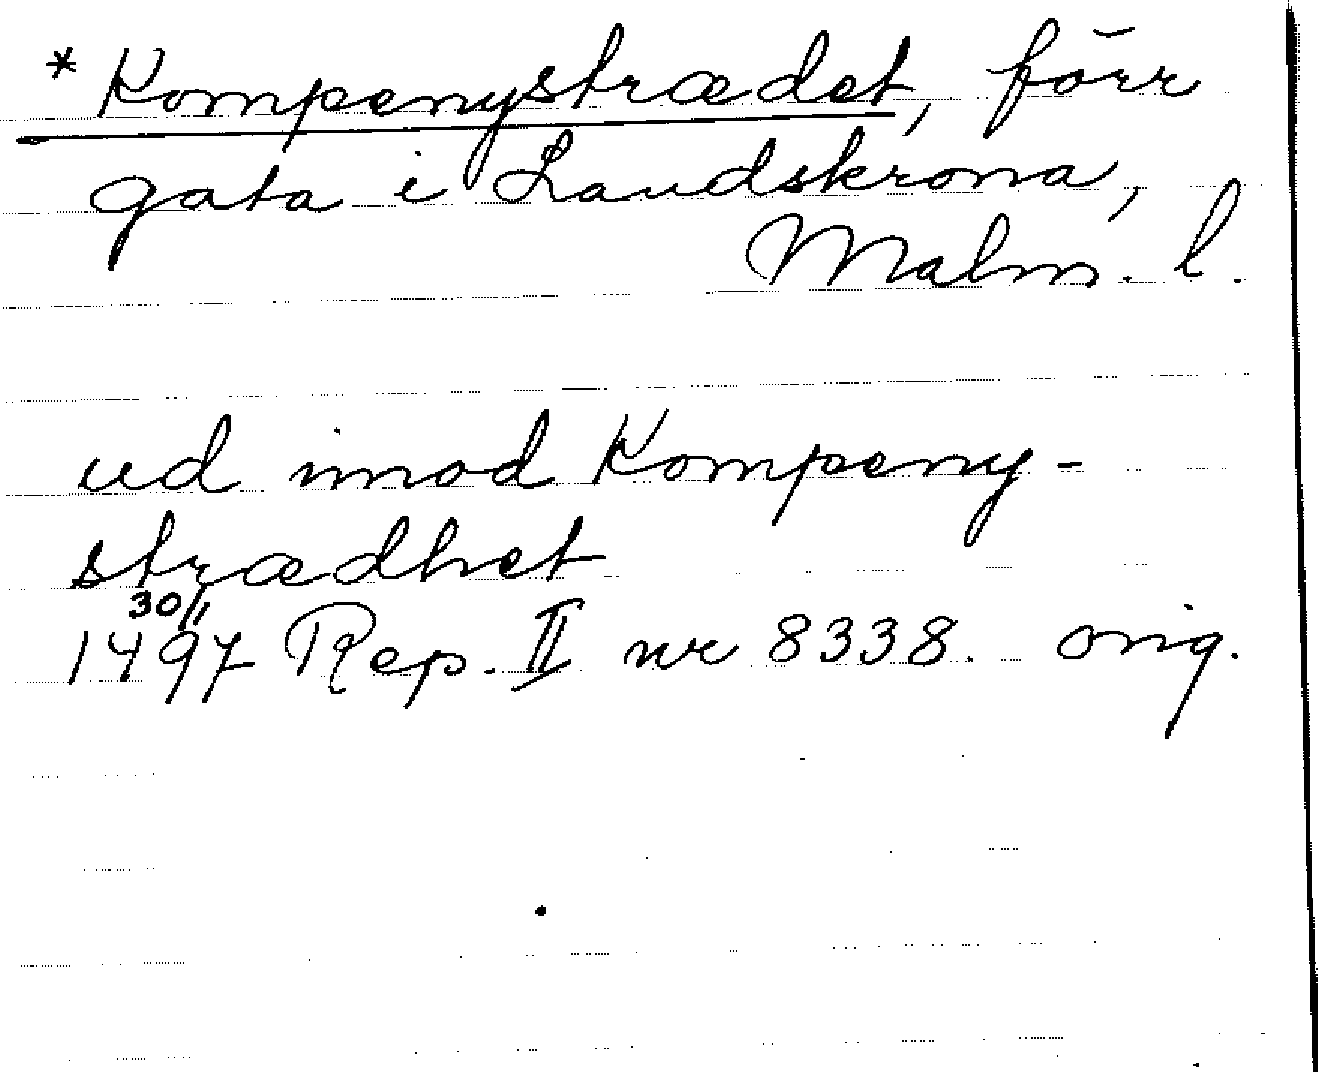 * Kompenystrædet, förr
gata i Landskrona,
Malm. l.
ud imod Kompeny-
strædhet
30/11
1497 Rep. II nr 8338. orig.